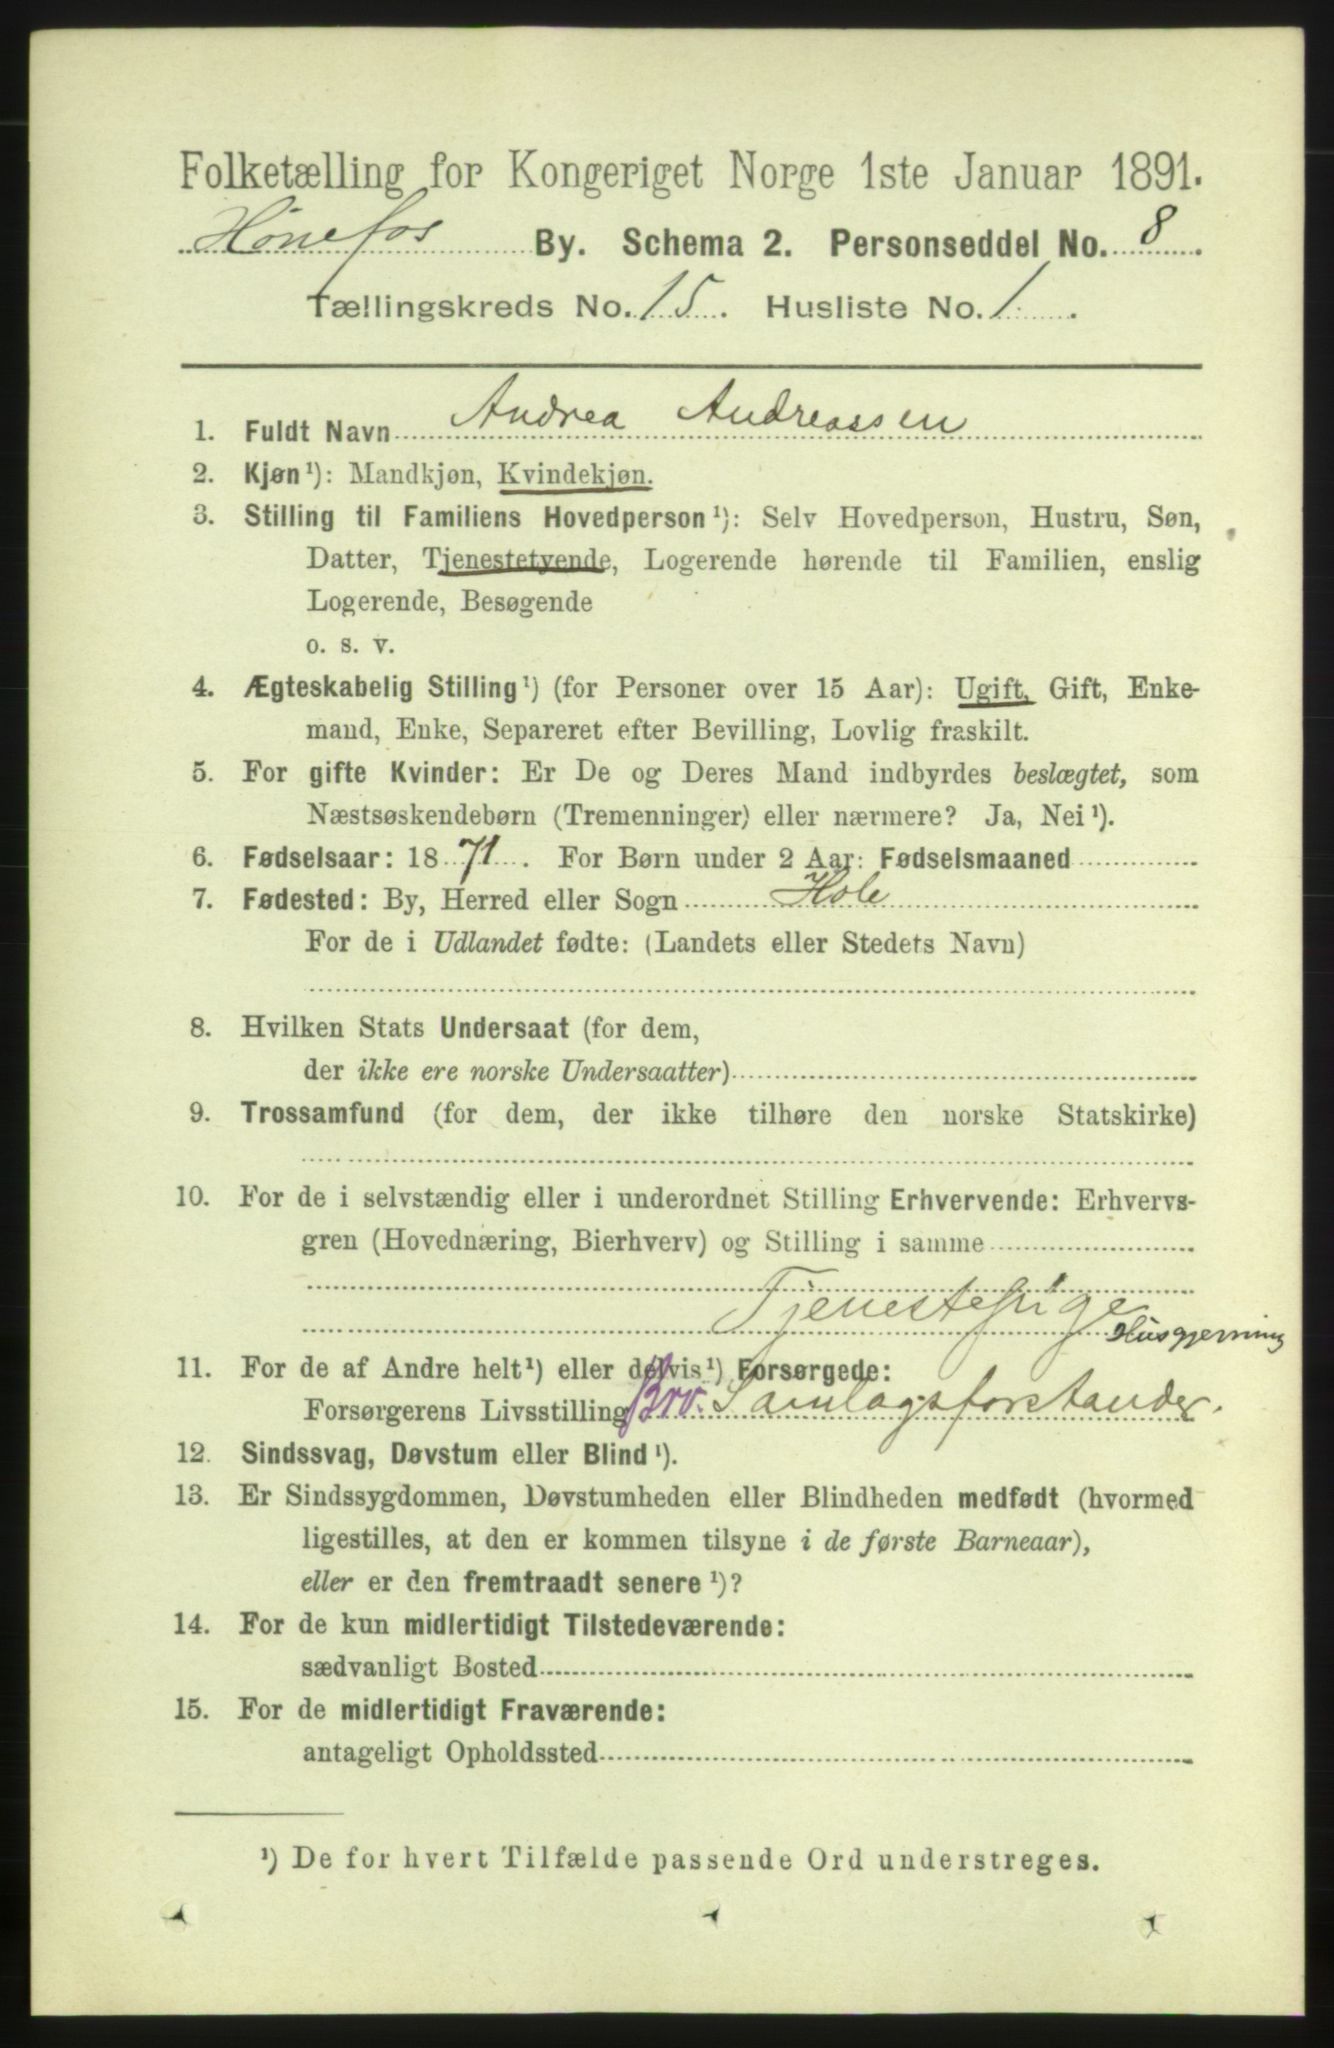 Folketælling for Kongeriget Norge 1ste Januar 1891.
Hønefos By. Schema 2. Personseddel No. 8.
Tællingskreds No. 15. Husliste No. 1.
1. Fuldt Navn Andrea Andreassen
2. Kjøn¹): Mandkjøn, Kvindekjøn.
3. Stilling til Familiens Hovedperson¹): Selv Hovedperson, Hustru, Søn,
Datter, Tjenestetyende, Logerende hørende til Familien, enslig
Logerende, Besøgende
o. s. v.
4. Ægteskabelig Stilling¹) (for Personer over 15 Aar): Ugift, Gift, Enke-
mand, Enke, Separeret efter Bevilling, Lovlig fraskilt.
5. For gifte Kvinder: Er De og Deres Mand indbyrdes beslægtet, som
Næstsøskendebørn (Tremenninger) eller nærmere? Ja, Nei¹).
6. Fødselsaar: 1871. For Børn under 2 Aar: Fødselsmaaned
7. Fødested: By, Herred eller Sogn Hole
For de i Udlandet fødte: (Landets eller Stedets Navn)
8. Hvilken Stats Undersaat (for dem,
der ikke ere norske Undersaatter)
9. Trossamfund (for dem, der ikke tilhøre den norske Statskirke)
10. For de i selvstændig eller i underordnet Stilling Erhvervende: Erhvervs-
gren (Hovednæring, Bierhverv) og Stilling i samme
Tjenestepige
Husgjerning
11. For de af Andre helt¹) eller delvis¹) Forsørgede:
Forsørgerens Livsstilling Brv. Samlagsforstander.
12. Sindssvag, Døvstum eller Blind¹).
13. Er Sindssygdommen, Døvstumheden eller Blindheden medfødt (hvormed
ligestilles, at den er kommen tilsyne i de første Barneaar),
eller er den fremtraadt senere¹)?
14. For de kun midlertidigt Tilstedeværende:
sædvanligt Bosted
15. For de midlertidigt Fraværende:
antageligt Opholdssted
¹) De for hvert Tilfælde passende Ord understreges.